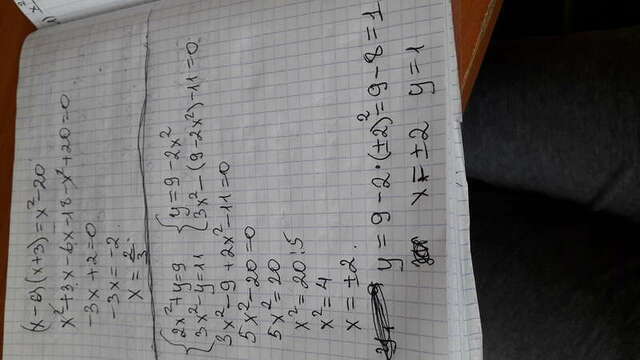 (x-6)(x+3)=x²-20
x²+3x-6x-18-x²+20=0
-3x+2=0
-3x=-2
x=2/3
{2x²+y=9 {y=9-2x²
3x²-y=11 3x²-(9-2x²)-11=0
3x²-9+2x²-11=0
5x²-20=0
5x²=20
x²=20:5
x²=4
x=±2.
y=9-2·(±2)²=9-8=1
x=±2 y=1